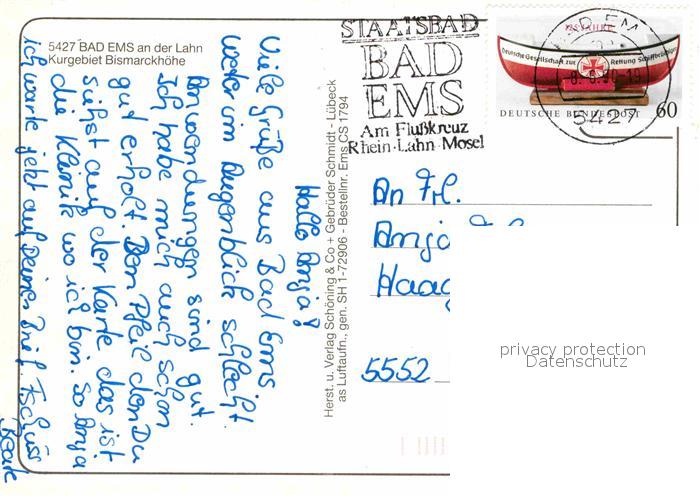 5427 BAD EMS an der Lahn
Kurgebiet Bismarckhöhe
STAATSBAD
BAD
EMS
Am Flußkreuz
Rhein-Lahn-Mosel
125 JAHRE
Deutsche Gesellschaft zur Rettung Schiffbrüchiger
DEUTSCHE BUNDESPOST 60
5427
Hallo Anja!
Viele Grüße aus Bad Ems.
Wetter im Augenblick schlecht.
Anwendungen sind gut.
Ich habe mich auch schon
gut erholt. Dem Pfeil den Du
siehst auf der Karte das ist
die Klinik wo ich bin. So Anja
ich warte jetzt auf Deine Brief. Tschüss
Beate
Herst. u. Verlag Schöning & Co + Gebrüder Schmidt - Lübeck
as Luftaufn., gen. SH 1-72906 - Bestellnr. Ems CS 1794
An Frl.
Anja
Haag
5552
privacy protection
Datenschutz